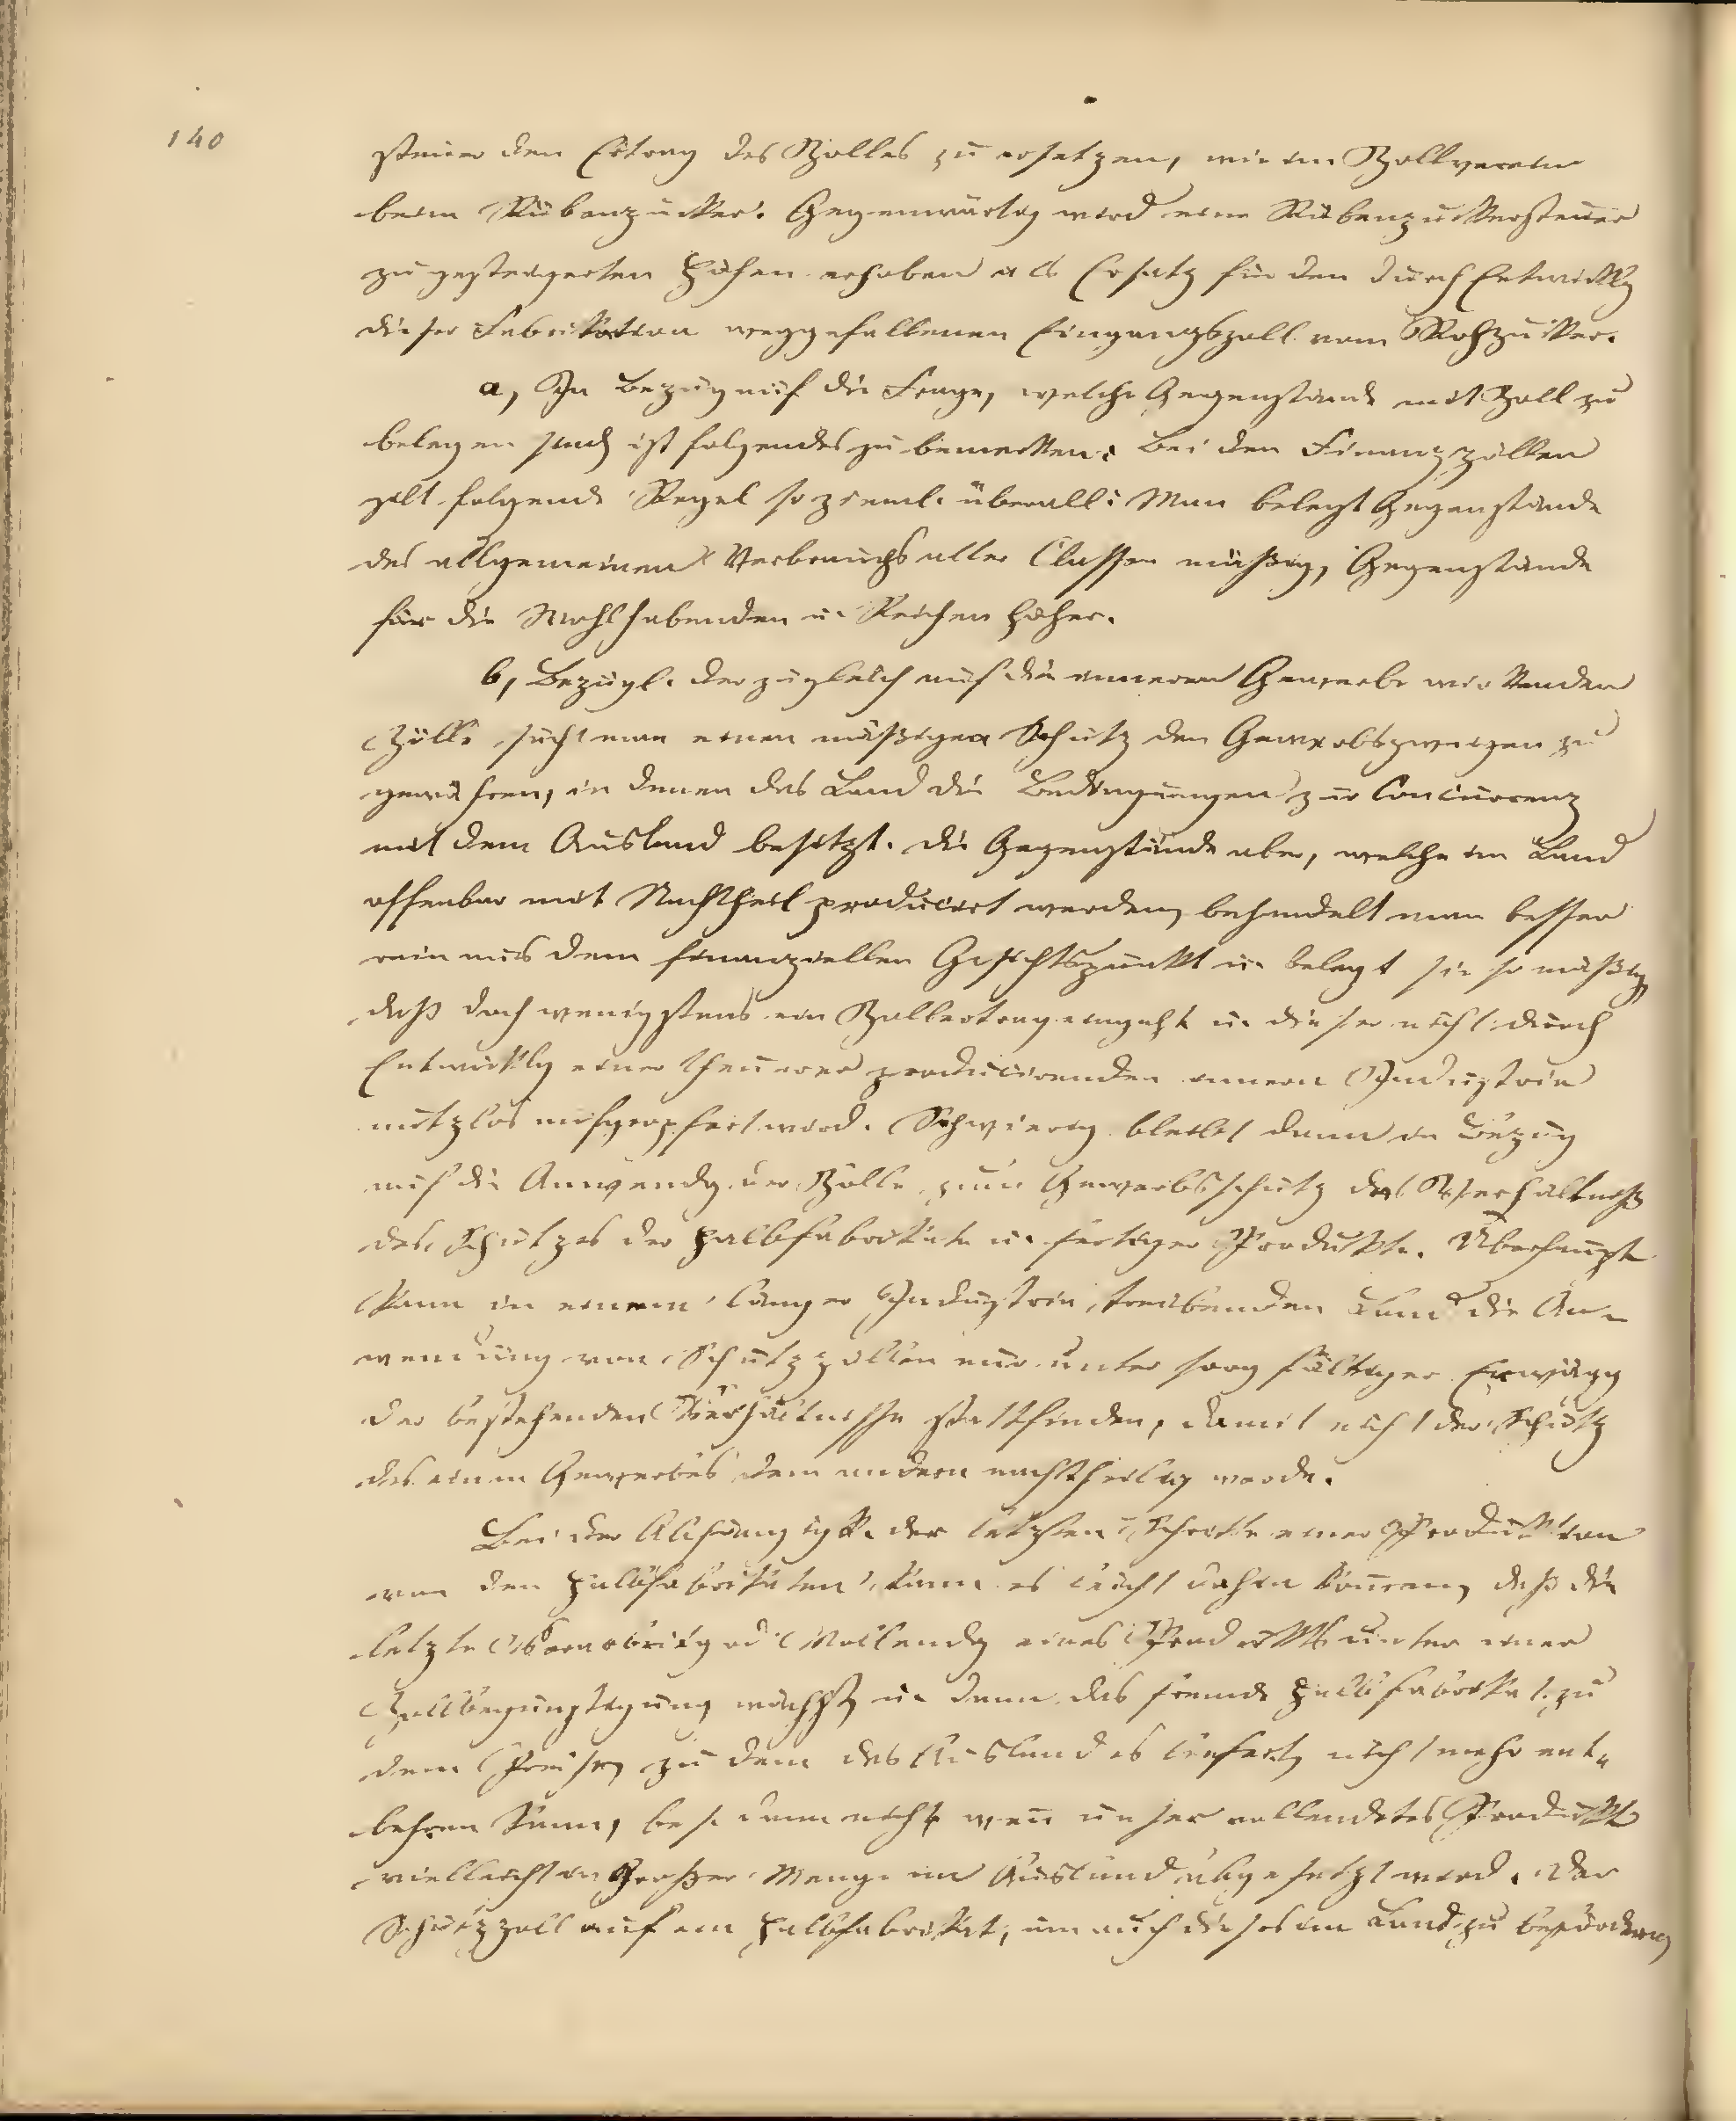 140
steuer den Ertrag des Zolles zu ersetzen, wie im Zollverein
beim Rübenzucker. Gegenwärtig wird eine Rübenzuckersteuer
zu gesteigerten Höhen erhoben als Ersatz für den durch Entwicklg
dieser Fabrikation weggefallenen Eingangszoll vom Rohzucker.
a, In Bezug auf die Frage, welche Gegenstände mit Zoll zu
belegen sind, ist folgendes zu bemerken: Bei den Finanzzöllen
gilt folgende Regel so zieml. überall: Man belegt Gegenstände
des allgemeinen Verbrauchs aller Classen mäßig, Gegenstände
für die Wohlhabenden u. Reichen höher.
b, Bezügl. der zugleich auf die inneren Gewerbe wirkenden
Zölle, sucht man einen mäßigen Schutz den Gewerbszweigen zu
gewähren, in denen das Land die Bedingungen zur Concurrenz
mit dem Ausland besitzt. Die Gegenstände aber, welche im Land
offenbar mit Nachtheil producirt werden, behandelt man besser
rein aus dem finanziellen Gesichtspunkt u. belegt sie so mäßig,
daß doch wenigstens ein Zollertrag eingeht u. dieser nicht durch
Entwicklg einer theuerer producirenden innern Industrie
nutzlos aufgeopfert wird. Schwierig bleibt dann in Bezug
auf die Anwendg der Zölle zum Gewerbsschutz das Verhältniß
des Schutzes der Halbfabrikate u. fertiger Produkte. Überhaupt
kann in einem länger Industrie treibenden Land die An-
wendung von Schutzzöllen nur unter sorgfältiger Erwägg
der bestehenden Verhältnisse stattfinden, damit nicht der Schutz
des einen Gewerbes dem andern nachtheilig werde.
Bei der Abhängigk. der letzten Schritte einer Produktion
von den Halbfabrikaten, kann es leicht dahin kommen, daß die
letzte Verarbeitg od. Vollendg eines Produkts unter einer
Zollbegünstigung wächst, u. dann das fremde Halbfabrikat zu
dem Preise, zu dem das Ausland es liefert, nicht mehr ent-
behren kann, bes. dann nicht, wenn unser vollendetes Produkt
vielleicht in großer Menge im Ausland abgesetzt wird. Der
Schutzzoll auf ein Halbfabrikat, um auch dieses im Land zu befördern,